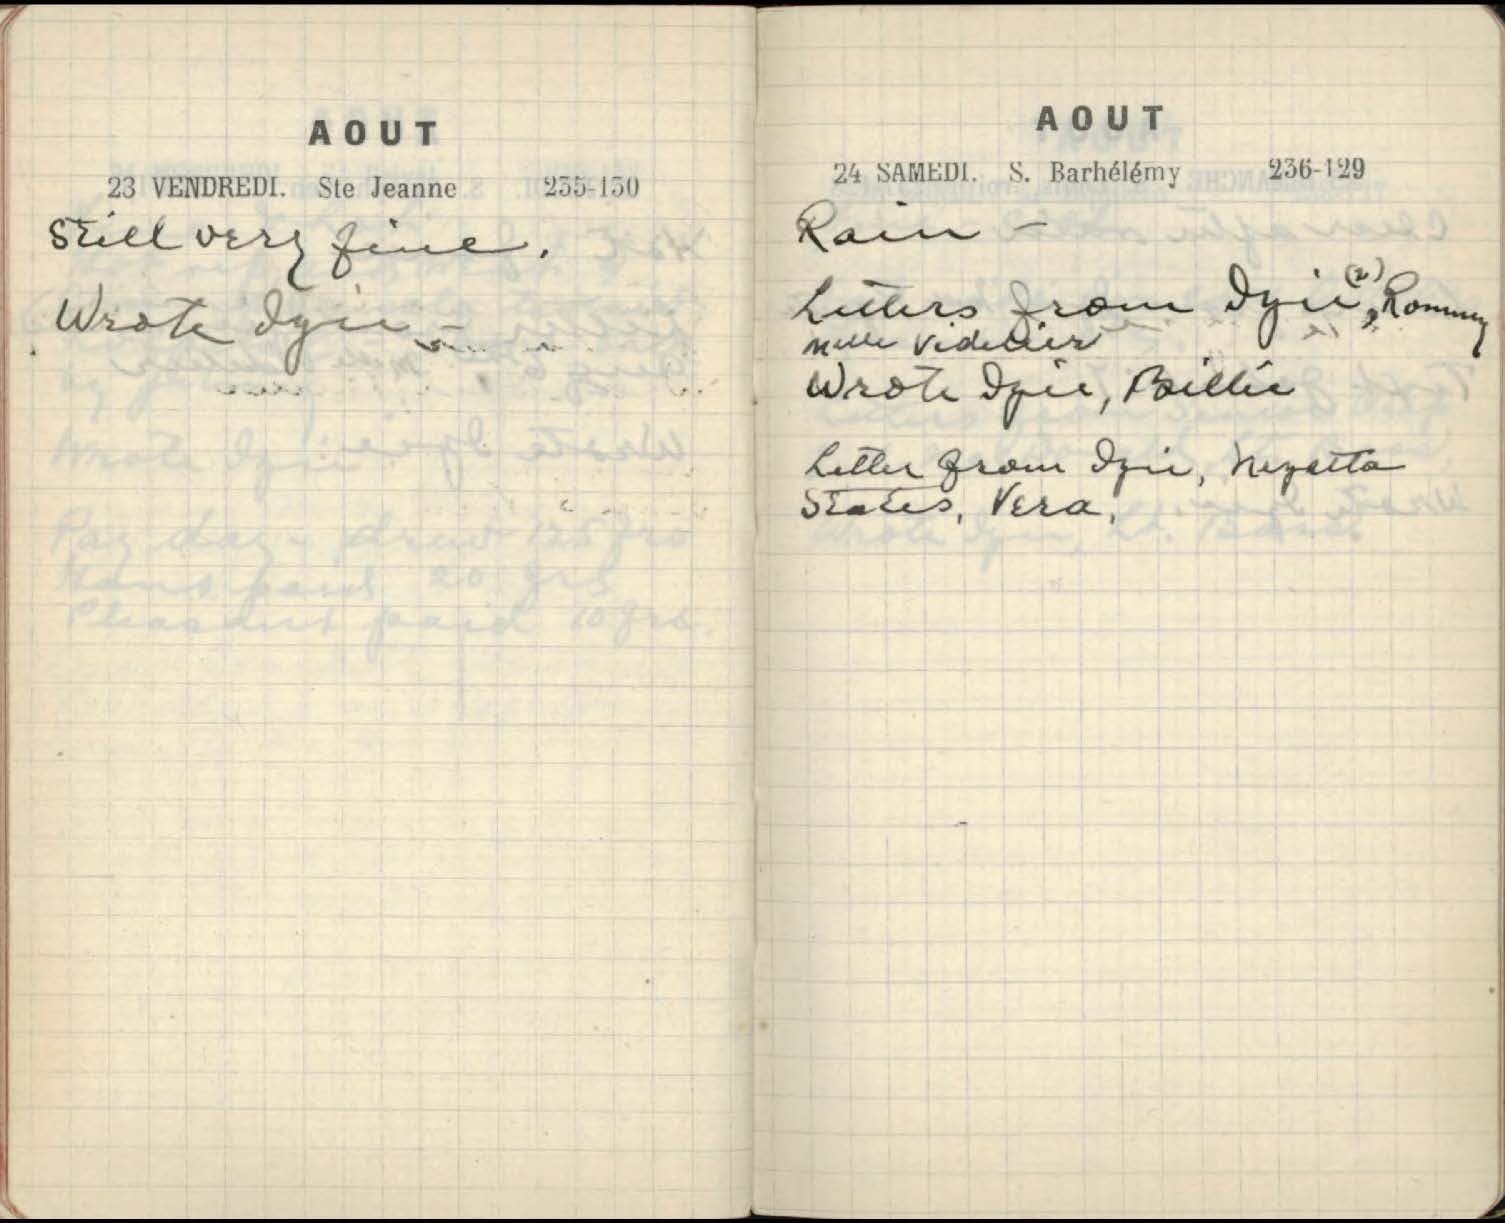 AOUT
23 VENDREDI. Ste Jeanne 235-130
Still very fine.
Wrote Izzie -
AOUT
24 SAMEDI. S. Barhélémy 236-129
Rain -
Letters from Izzie (2), Rommey
Mlle
Wrote Izzie, Billie
Letter from Izzie,
States, Vera,